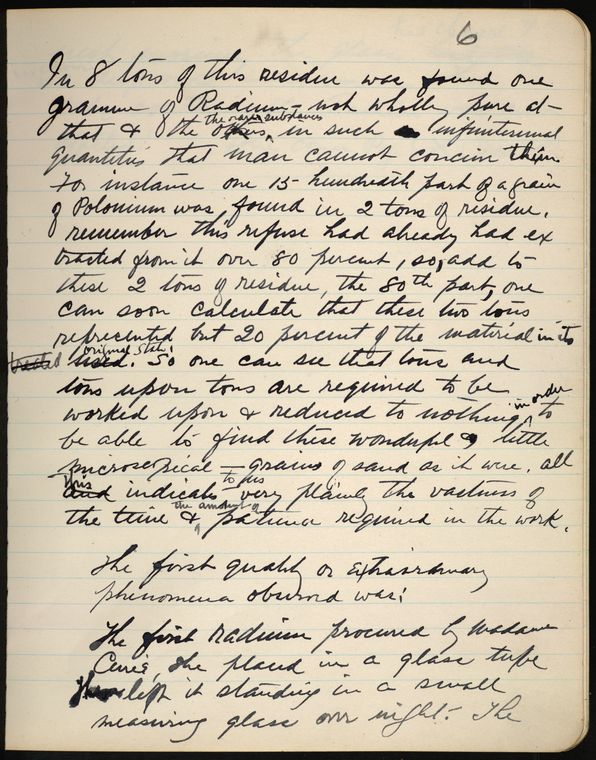 6
In 8 tons of this residue was found one
gramme of Radium – not wholly pure at
that & the the rarer substances, in such infinitesimal
quantities that man cannot concieve them.
For instance one 15 hundredth part of a grain
of Polonium was found in 2 tons of residue.
remember this refuse had already had ex
tracted from it over 80 percent, so, add to
these 2 tons of residue, the 80th part, one
can soon calculate that these two tons
represented but 20 percent of the material in its
original state. So one can see that tons and
tons upon tons are required to be
worked upon & reduced to nothing in order to
be able to find these wonderful little
microscopical – grains of sand as it were. all
this indicates to us very plainly the vastness of
the time & the amount of patience required in the work.
The first quality or extraordinary
phenomena observed was:
The first radium procured by Madame
Curie, she placed in a glass tube
left it standing in a small
measuring glass over night. The